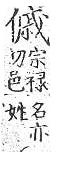 傶
宗禄
切邑
名亦
姓